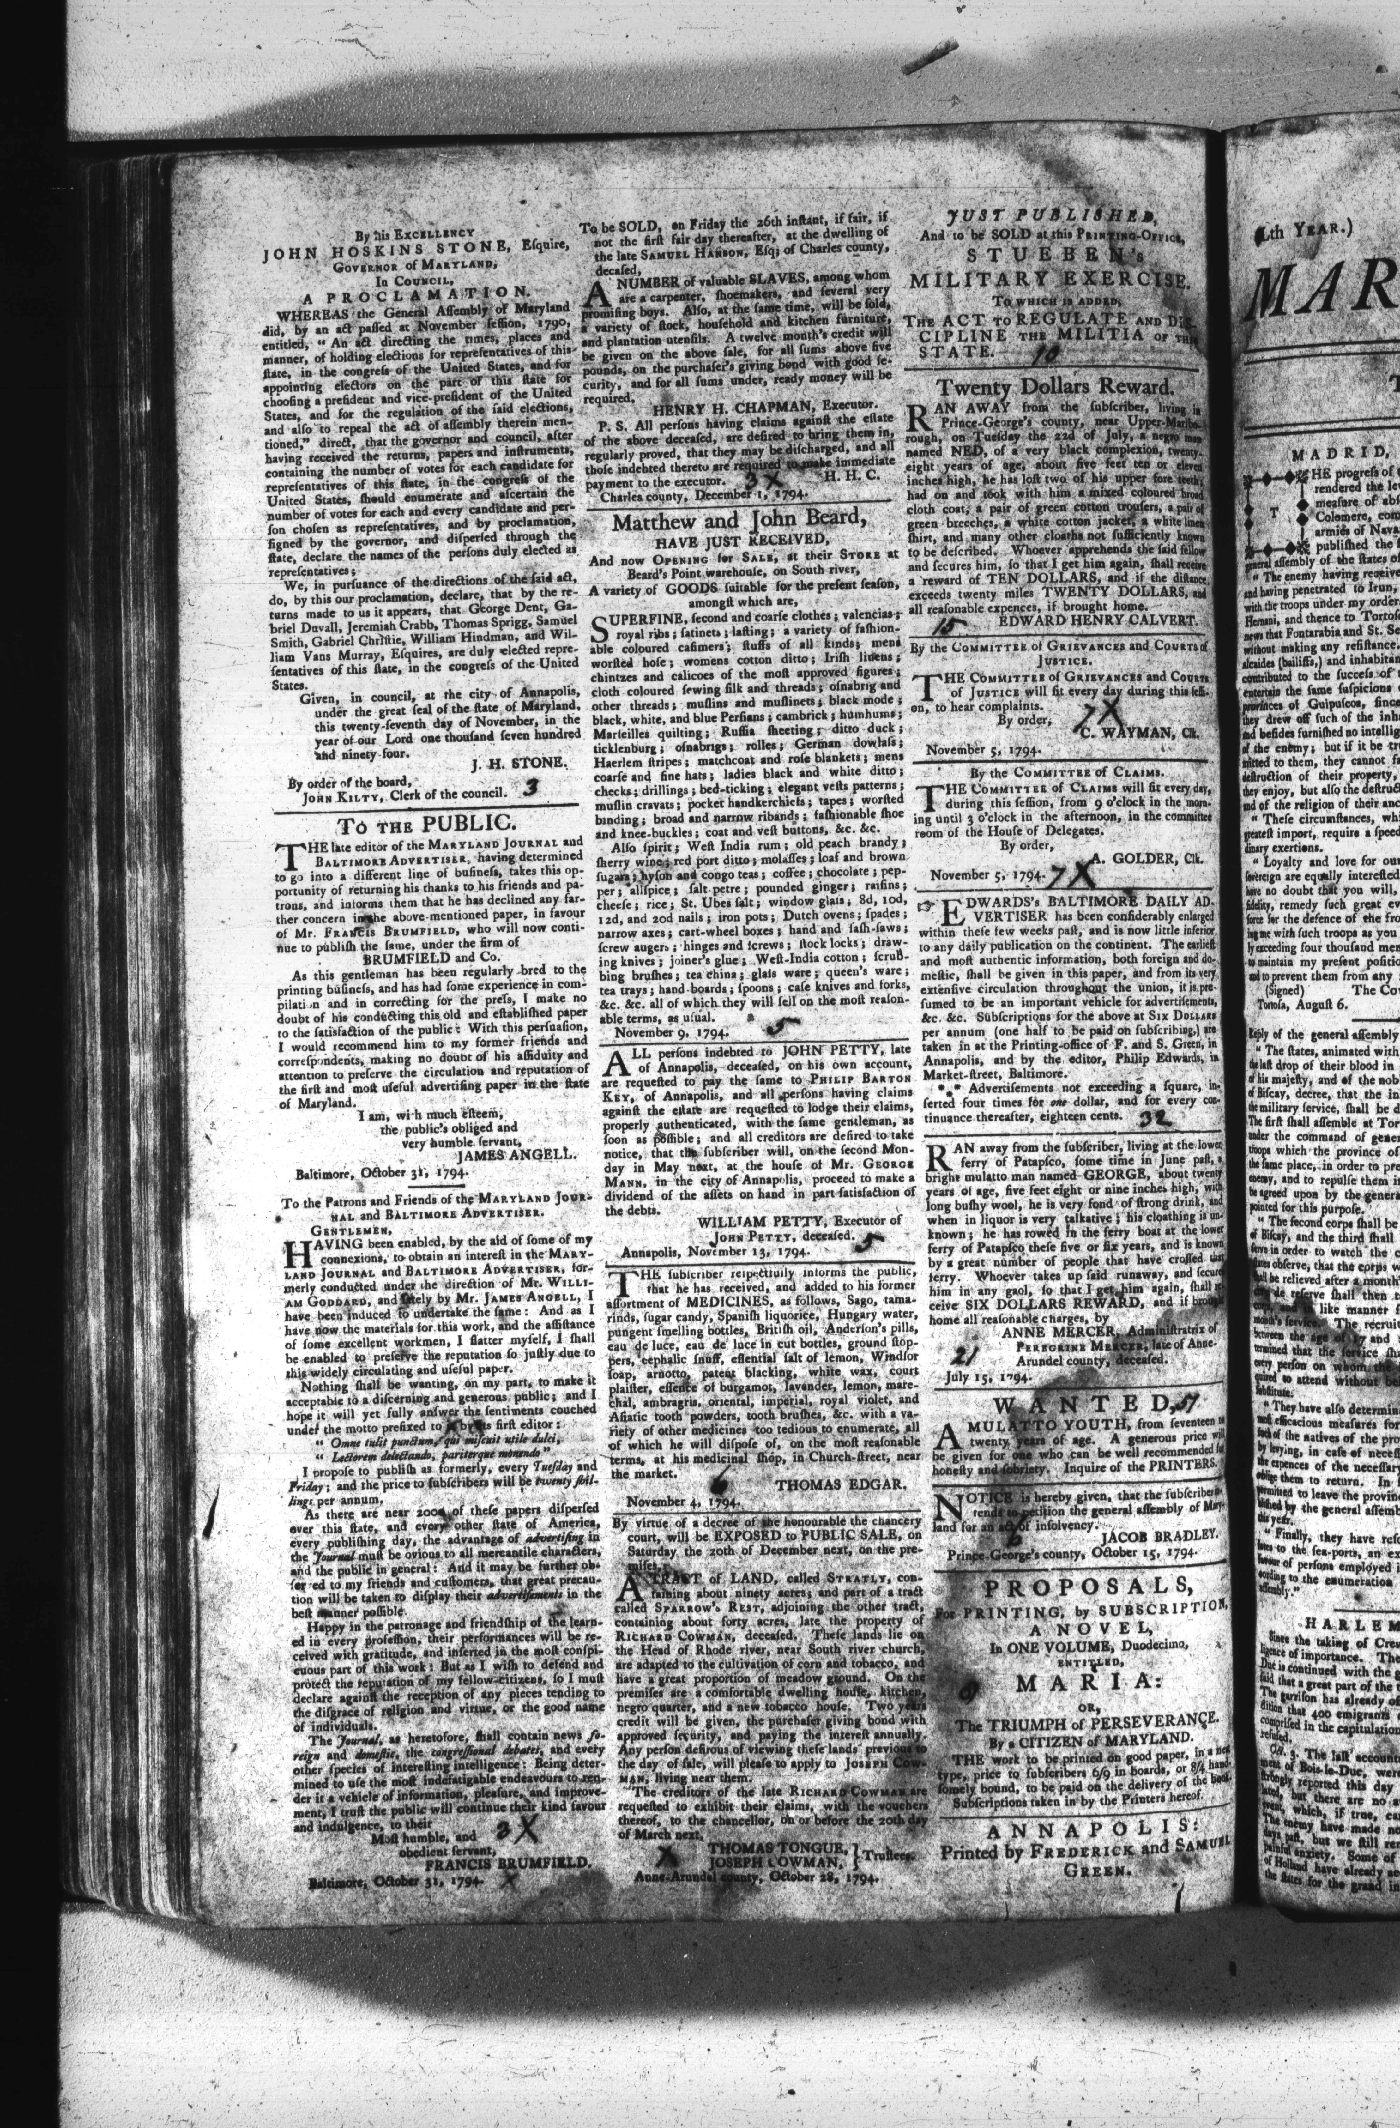 By his EXCELLENCY
JOHN HOSKINS STONE, Eſquire,
GOVERNOR of MARYLAND,
In COUNCIL,
A PROCLAMATION.
WHEREAS the General Aſſembly of Maryland
did, by an act paſſed at November ſeſſion, 1790,
entitled, "An act directing the times, places and
manner, of holding elections for repreſentatives of this
ſtate, in the congreſs of the United States, and for
appointing electors on the part of this ſtate for
chooſing a preſident and vice-preſident of the United
States, and for the regulation of the ſaid elections,
and alſo to repeal the act of aſſembly therein men-
tioned," direct, that the governor and council, after
having received the returns, papers and inſtruments,
containing the number of votes for each candidate for
repreſentatives of this ſtate, in the congreſs of the
United States, ſhould enumerate and aſcertain the
number of votes for each and every candidate and per-
ſon choſen as repreſentatives, and by proclamation,
ſigned by the governor, and diſperſed through the
ſtate, declare the names of the perſons duly elected as
repreſentatives;
We, in purſuance of the directions of the ſaid act,
do, by this our proclamation, declare, that by the re-
turns made to us it appears, that George Dent, Ga-
briel Duvall, Jeremiah Crabb, Thomas Sprigg, Samuel
Smith, Gabriel Chriſtie, William Hindman, and Wil-
liam Vans Murray, Eſquires, are duly elected repre-
ſentatives of this ſtate, in the congreſs of the United
States.
Given, in council, at the city of Annapolis,
under the great ſeal of the ſtate of Maryland,
this twenty-ſeventh day of November, in the
year of our Lord one thouſand ſeven hundred
and ninety-four.
J. H. STONE.
By order of the board,
JOHN KILTY, Clerk of the council. 3
To THE PUBLIC.
THE late editor of the MARYLAND JOURNAL and
BALTIMORE ADVERTISER, having determined
to go into a different line of buſineſs, takes this op-
portunity of returning his thanks to his friends and pa-
trons, and informs them that he has declined any far-
ther concern in the above-mentioned paper, in favour
of Mr. FRANCIS BRUMFIELD, who will now conti-
nue to publiſh the ſame, under the firm of
BRUMFIELD and Co.
As this gentleman has been regularly bred to the
printing buſineſs, and has had ſome experience in com-
pilation and in correcting for the preſs, I make no
doubt of his conducting this old and eſtabliſhed paper
to the ſatisfaction of the public: With this perſuaſion,
I would recommend him to my former friends and
correſpondents, making no doubt of his aſſiduity and
attention to preſerve the circulation and reputation of
the firſt and moſt uſeful advertiſing paper in the ſtate
of Maryland.
I am, with much eſteem,
the public's obliged and
very humble ſervant,
JAMES ANGELL.
Baltimore, October 31, 1794.
To the Patrons and Friends of the MARYLAND JOUR-
NAL and BALTIMORE ADVERTISER.
GENTLEMEN,
HAVING been enabled, by the aid of ſome of my
connexions, to obtain an intereſt in the MARY-
LAND JOURNAL and BALTIMORE ADVERTISER, for-
merly conducted under the direction of Mr. WILLI-
AM GODDARD, and lately by Mr. JAMES ANGELL, I
have been induced to undertake the ſame: And as I
have now the materials for this work, and the aſſiſtance
of ſome excellent workmen, I flatter myſelf, I ſhall
be enabled to preſerve the reputation ſo juſtly due to
this widely circulating and uſeful paper.
Nothing ſhall be wanting, on my part, to make it
acceptable to a diſcerning and generous public; and I
hope it will yet fully anſwer the ſentiments couched
under the motto prefixed to by its firſt editor:
"Omne tulit punctum, qui miſcuit utile dulci,
"Lectorem delectando, pariterque monendo"
I propoſe to publiſh as formerly, every Tueſday and
Friday; and the price to ſubſcribers will be twenty ſhil-
lings per annum.
As there are near 2000 of theſe papers diſperſed
over this ſtate, and every other ſtate of America,
every publiſhing day, the advantage of advertiſing in
the Journal muſt be ovious to all mercantile characters,
and the public in general: And it may be further ob-
ſerved to my friends and cuſtomers, that great precau-
tion will be taken to diſplay their advertiſements in the
beſt manner poſſible.
Happy in the patronage and friendſhip of the learn-
ed in every profeſſion, their performances will be re-
ceived with gratitude, and inſerted in the moſt conſpi-
cuous part of this work: But as I wiſh to defend and
protect the reputation of my fellow-citizens, ſo I muſt
declare againſt the reception of any pieces tending to
the diſgrace of religion and virtue, or the good name
of individuals.
The Journal, as heretofore, ſhall contain news fo-
reign and domeſtic, the congreſſional debates, and every
other ſpecies of intereſting intelligence: Being deter-
mined to uſe the moſt indefatigable endeavours to ren-
der it a vehicle of information, pleaſure, and improve-
ment, I truſt the public will continue their kind favour
and indulgence, to their
Moſt humble, and 3X
obedient ſervant,
FRANCIS BRUMFIELD.
Baltimore, October 31, 1794.
To be SOLD, on Friday the 26th inſtant, if fair, if
not the firſt fair day thereafter, at the dwelling of
the late SAMUEL HANSON, Eſq; of Charles county,
deceaſed,
A NUMBER of valuable SLAVES, among whom
are a carpenter, ſhoemakers, and ſeveral very
promiſing boys. Alſo, at the ſame time, will be ſold,
a variety of ſtock, houſehold and kitchen furniture,
and plantation utenſils. A twelve month's credit will
be given on the above ſale, for all ſums above five
pounds, on the purchaſer's giving bond with good ſe-
curity, and for all ſums under, ready money will be
required.
HENRY H. CHAPMAN, Executor.
P. S. All perſons having claims againſt the eſtate
of the above deceaſed, are deſired to bring them in,
regularly proved, that they may be diſcharged, and all
thoſe indebted thereto are required to make immediate
payment to the executor. 3X H. H. C.
Charles county, December 1, 1794.
Matthew and John Beard,
HAVE JUST RECEIVED,
And now OPENING for SALE, at their STORE at
Beard's Point warehouſe, on South river,
A variety of GOODS ſuitable for the preſent ſeaſon,
amongſt which are,
SUPERFINE, ſecond and coarſe clothes; valencias;
royal ribs; ſatinets; laſting; a variety of faſhion-
able coloured caſimers; ſtuffs of all kinds; mens
worſted hoſe; womens cotton ditto; Iriſh linens;
chintzes and calicoes of the moſt approved figures;
cloth coloured ſewing ſilk and threads; oſnabrig and
other threads; muſlins and muſlinets; black mode;
black, white, and blue Perſians; cambrick; humhums;
Marſeilles quilting; Ruſſia ſheeting; ditto duck;
ticklenburg; oſnabrigs; rolles; German dowlaſs;
Haerlem ſtripes; matchcoat and roſe blankets; mens
coarſe and fine hats; ladies black and white ditto;
checks; drillings; bed-ticking; elegant veſts patterns;
muſlin cravats; pocket handkerchiefs; tapes; worſted
binding; broad and narrow ribands; faſhionable ſhoe
and knee-buckles; coat and veſt buttons, &c. &c.
Alſo ſpirit; Weſt India rum; old peach brandy;
ſherry wine; red port ditto; molaſſes; loaf and brown
ſugars; hyſon and congo teas; coffee; chocolate; pep-
per; allſpice; ſalt-petre; pounded ginger; raiſins;
cheeſe; rice; St. Ubes ſalt; window glaſs; 8d, 10d,
12d, and 20d nails; iron pots; Dutch ovens; ſpades;
narrow axes; cart-wheel boxes; hand and ſaſh-ſaws;
ſcrew augers; hinges and ſcrews; ſtock locks; draw-
ing knives; joiner's glue; Weſt-India cotton; ſcrub-
bing bruſhes; tea china; glaſs ware; queen's ware;
tea trays; hand-boards; ſpoons; caſe knives and forks,
&c. &c. all of which they will ſell on the moſt reaſon-
able terms, as uſual.
November 9, 1794. 5
ALL perſons indebted to JOHN PETTY, late
of Annapolis, deceaſed, on his own account,
are requeſted to pay the ſame to PHILIP BARTON
KEY, of Annapolis, and all perſons having claims
againſt the eſtate are requeſted to lodge their claims,
properly authenticated, with the ſame gentleman, as
ſoon as poſſible; and all creditors are deſired to take
notice, that the ſubſcriber will, on the ſecond Mon-
day in May next, at the houſe of Mr. GEORGE
MANN, in the city of Annapolis, proceed to make a
dividend of the aſſets on hand in part ſatisfaction of
the debts.
WILLIAM PETTY, Executor of
JOHN PETTY, deceaſed.
Annapolis, November 13, 1794. 5
THE ſubſcriber reſpectfully informs the public,
that he has received, and added to his former
aſſortment of MEDICINES, as follows, Sago, tama-
rinds, ſugar candy, Spaniſh liquorice, Hungary water,
pungent ſmelling bottles, Britiſh oil, Anderſon's pills,
eau de luce, eau de luce in cut bottles, ground ſtop-
pers, cephalic ſnuff, eſſential ſalt of lemon, Windſor
ſoap, arnotto, patent blacking, white wax, court
plaiſter, eſſence of burgamot, lavander, lemon, mare-
chal, ambragris, oriental, imperial, royal violet, and
Aſiatic tooth powders, tooth bruſhes, &c. with a va-
riety of other medicines too tedious to enumerate, all
of which he will diſpoſe of, on the moſt reaſonable
terms, at his medicinal ſhop, in Church-ſtreet, near
the market.
6 THOMAS EDGAR.
November 4, 1794.
By virtue of a decree of the honourable the chancery
court, will be EXPOSED to PUBLIC SALE, on
Saturday the 20th of December next, on the pre-
miſes,
A TRACT of LAND, called STRATLY, con-
taining about ninety acres; and part of a tract
called SPARROW's REST, adjoining the other tract,
containing about forty acres, late the property of
RICHARD COWMAN, deceaſed. Theſe lands lie on
the Head of Rhode river, near South river church,
are adapted to the cultivation of corn and tobacco, and
have a great proportion of meadow ground. On the
premiſes are a comfortable dwelling houſe, kitchen,
negro quarter, and a new tobacco houſe. Two years
credit will be given, the purchaſer giving bond with
approved ſecurity, and paying the intereſt annually.
Any perſon deſirous of viewing theſe lands previous to
the day of ſale, will pleaſe to apply to JOSEPH COW-
MAN, living near them.
The creditors of the late RICHARD COWMAN are
requeſted to exhibit their claims, with the vouchers
thereof, to the chancellor, on or before the 20th day
of March next.
THOMAS TONGUE,
X JOSEPH COWMAN, } Truſtees.
Anne-Arundel county, October 28, 1794.
JUST PUBLISHED,
And to be SOLD at this PRINTING-OFFICE,
STUEBEN's
MILITARY EXERCISE.
TO WHICH IS ADDED,
THE ACT TO REGULATE AND DIS-
CIPLINE THE MILITIA OF THIS
STATE. 10
Twenty Dollars Reward.
RAN AWAY from the ſubſcriber, living in
Prince-George's county, near Upper-Marlbo-
rough, on Tueſday the 22d of July, a negro man
named NED, of a very black complexion, twenty-
eight years of age, about five feet ten or eleven
inches high, he has loſt two of his upper fore teeth;
had on and took with him a mixed coloured broad
cloth coat, a pair of green cotton trouſers, a pair of
green breeches, a white cotton jacket, a white linen
ſhirt, and many other cloaths not ſufficiently known
to be deſcribed. Whoever apprehends the ſaid fellow
and ſecures him, ſo that I get him again, ſhall receive
a reward of TEN DOLLARS, and if the diſtance
exceeds twenty miles TWENTY DOLLARS, and
all reaſonable expences, if brought home.
15 EDWARD HENRY CALVERT.
By the COMMITTEE of GRIEVANCES and COURTS of
JUSTICE.
THE COMMITTEE of GRIEVANCES and COURTS
of JUSTICE will ſit every day during this ſeſſi-
on, to hear complaints.
By order, 7X
C. WAYMAN, Clk.
November 5, 1794.
By the COMMITTEE of CLAIMS.
THE COMMITTEE of CLAIMS will ſit every day,
during this ſeſſion, from 9 o'clock in the morn-
ing until 3 o'clock in the afternoon, in the committee
room of the Houſe of Delegates.
By order,
A. GOLDER, Clk.
November 5, 1794. 7X
☞ EDWARDS's BALTIMORE DAILY AD-
VERTISER has been conſiderably enlarged
within theſe few weeks paſt, and is now little inferior
to any daily publication on the continent. The earlieſt
and moſt authentic information, both foreign and do-
meſtic, ſhall be given in this paper, and from its very
extenſive circulation throughout the union, it is pre-
ſumed to be an important vehicle for advertiſements,
&c. &c. Subſcriptions for the above at SIX DOLLARS
per annum (one half to be paid on ſubſcribing,) are
taken in at the Printing-office of F. and S. Green, in
Annapolis, and by the editor, Philip Edwards, in
Market-ſtreet, Baltimore.
*.* Advertiſements not exceeding a ſquare, in-
ſerted four times for one dollar, and for every con-
tinuance thereafter, eighteen cents. 32
RAN away from the ſubſcriber, living at the lower
ferry of Patapſco, ſome time in June paſt, a
bright mulatto man named GEORGE, about twenty
years of age, five feet eight or nine inches high, with
long buſhy wool, he is very fond of ſtrong drink, and
when in liquor is very talkative; his cloathing is un-
known; he has rowed in the ferry boat at the lower
ferry of Patapſco theſe five or ſix years, and is known
by a great number of people that have croſſed that
ferry. Whoever takes up ſaid runaway, and ſecures
him in any gaol, ſo that I get him again, ſhall re-
ceive SIX DOLLARS REWARD, and if brought
home all reaſonable charges, by
ANNE MERCER, Adminiſtratrix of
PEREGRINE MERCER, late of Anne-
21 Arundel county, deceaſed.
July 15, 1794.
WANTED, 57
A MULATTO YOUTH, from ſeventeen to
twenty years of age. A generous price will
be given for one who can be well recommended for
honeſty and ſobriety. Inquire of the PRINTERS.
NOTICE is hereby given, that the ſubſcriber in-
tends to petition the general aſſembly of Mary-
land for an act of inſolvency.
6 JACOB BRADLEY.
Prince-George's county, October 15, 1794.
PROPOSALS,
For PRINTING, by SUBSCRIPTION,
A NOVEL,
In ONE VOLUME, Duodecimo,
ENTITLED,
MARIA:
OR,
The TRIUMPH of PERSEVERANCE.
By a CITIZEN of MARYLAND.
THE work to be printed on good paper, in a new
type, price to ſubſcribers 6/9 in boards, or 8/4 hand-
ſomely bound, to be paid on the delivery of the book.
Subſcriptions taken in by the Printers hereof.
ANNAPOLIS:
Printed by FREDERICK and SAMUEL
GREEN.
Lth YEAR.)
MAR
MADRID,
THE progreſs of
rendered the
meaſure of
Colomero, com
armies of
publiſhed the
general aſſembly of the ſtates of
"The enemy having
and having penetrated to Irun,
with the troops under my order
Hernani, and thence to
news that Fontarabia and St.
without making any reſiſtance.
alcaides (bailiffs,) and
contributed to the ſucceſs of
entertain the ſame ſuſpicions
provinces of Guipuſcoa,
they drew off ſuch of the
and beſides furniſhed no
of the enemy; but if it be
mitted to them, they cannot
deſtruction of their property,
they enjoy, but alſo the
and of the religion of their
"Theſe circumſtances,
greateſt import, require a
dinary exertions.
"Loyalty and love for our
ſovereign are equally intereſted
have no doubt that you will,
fidelity, remedy ſuch great
force for the defence of the
ing me with ſuch troops as you
ly exceeding four thouſand men
to maintain my preſent
and to prevent them from any
(Signed) The
Toloſa, Auguſt 6.
Reply of the general aſſembly
"The ſtates, animated with
the laſt drop of their blood in
of his majeſty, and of the
of Biſcay, decree, that the
the military ſervice, ſhall be
The firſt ſhall aſſemble at
under the command of
troops which the province of
the ſame place, in order to
enemy, and to repulſe them
be agreed upon by the
pointed for this purpoſe.
"The ſecond corps ſhall be
of Biſcay, and the third ſhall
in order to watch the
obſerve, that the corps
ſhall be relieved after a month
ſhall then
like manner
The
between the age of 17 and
termined that the ſervice
every perſon on whom
quired to attend without
ſubſtitute.
"They have alſo
moſt efficacious meaſures for
ſuch of the natives of the
by levying, in caſe of
the expences of the neceſſary
oblige them to return. In
permitted to leave the
by the general
this year.
"Finally, they have
to the ſea-ports, an
of perſons employed
to the enumeration
aſſembly."
HARLEM
Since the taking of
ligence of importance. The
Due is continued with the
ſaid that a great part of the
The garriſon has already
dition that 400 emigrants
compriſed in the capitulation
refuſed.
Oct. 3. The laſt
ment of Bois-le-Duc,
ſtrongly reported this day
but there are no
which, if true,
The enemy have made
days paſt, but we ſtill
painful anxiety. Some of
of Holland have already
the ſtates for the grand